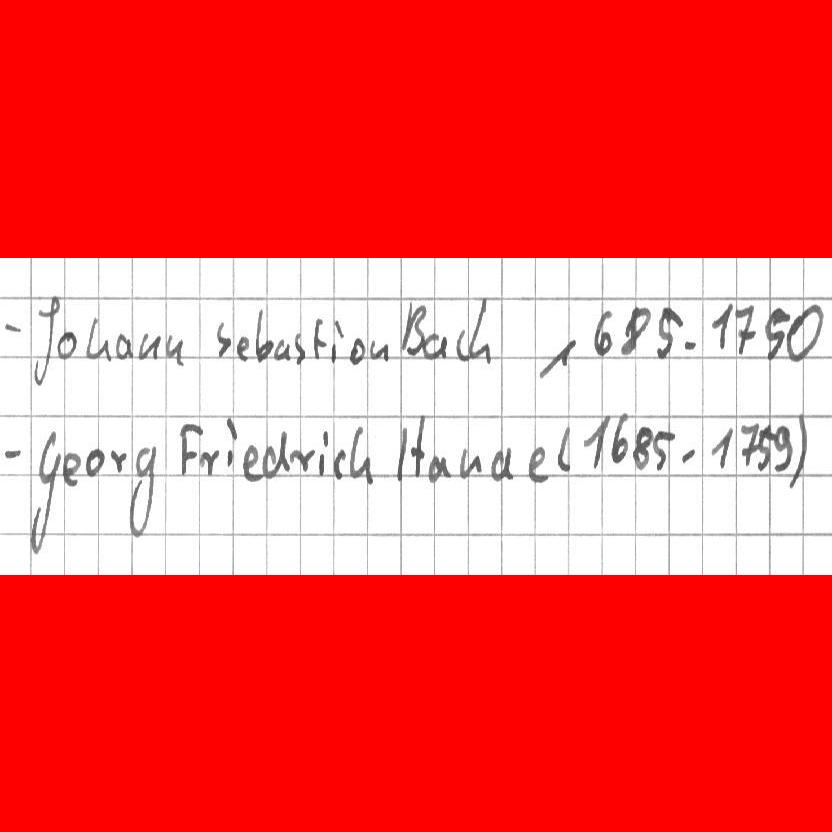 - Johann Sebastian Bach 1685-1750
- Georg Friedrich Handel (1685-1759)